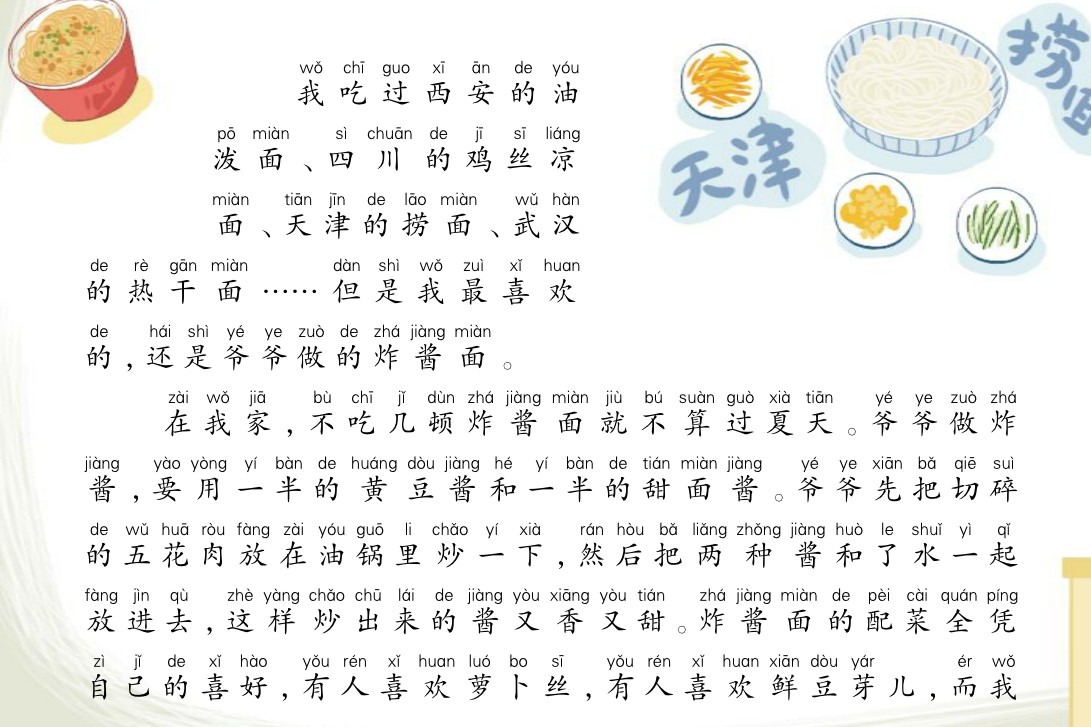 wǒ chī guo xī ān de yóu
我吃过西安的油
pō miàn sì chuān de jī sī liáng
泼面、四川的鸡丝凉
miàn tiān jīn de lāo miàn wǔ hàn
面、天津的捞面、武汉
de rè gān miàn dàn shì wǒ zuì xǐ huan
的热干面……但是我最喜欢
de hái shì yé ye zuò de zhá jiàng miàn
的，还是爷爷做的炸酱面。
zài wǒ jiā bù chī jǐ dùn zhá jiàng miàn jiù bú suàn guò xià tiān yé ye zuò zhá
在我家，不吃几顿炸酱面就不算过夏天。爷爷做炸
jiàng yào yòng yí bàn de huáng dòu jiàng hé yí bàn de tián miàn jiàng yé ye xiān bǎ qiē suì
酱，要用一半的黄豆酱和一半的甜面酱。爷爷先把切碎
de wǔ huā ròu fàng zài yóu guō li chǎo yí xià rán hòu bǎ liǎng zhǒng jiàng huò le shuǐ yì qǐ
的五花肉放在油锅里炒一下，然后把两种酱和了水一起
fàng jìn qù zhè yàng chǎo chū lái de jiàng yòu xiāng yòu tián zhá jiàng miàn de pèi cài quán píng
放进去，这样炒出来的酱又香又甜。炸酱面的配菜全凭
zì jǐ de xǐ hào yǒu rén xǐ huan luó bo sī yǒu rén xǐ huan xiān dòu yár ér wǒ
自己的喜好，有人喜欢萝卜丝，有人喜欢鲜豆芽儿，而我
天津
捞面